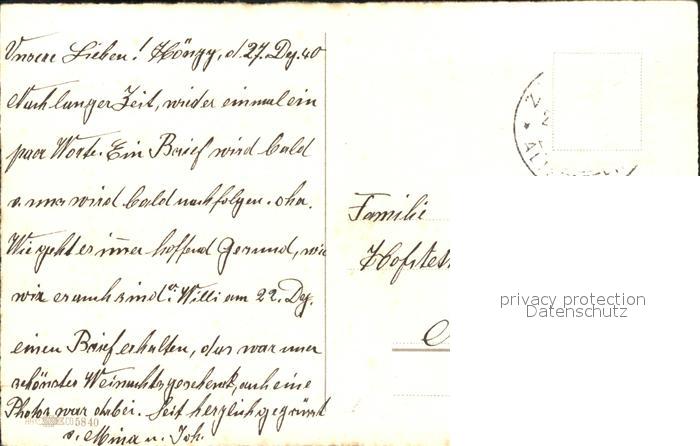 Unsere Lieben! Hönzy, d. 27. Dez. 40
Nach langer Zeit, wieder einmal ein
paar Worte. Ein Brief wird bald
v. uns wird bald nachfolgen.
Wie geht es immer hoffend Gesund, wie
wir es auch sind. Willi am 22. Dez.
einen Brief erhalten, das war unser
schönstes Weinachtsgeschenk, auch eine
Photos war dabei. Seit herzlich gegrüsst
v. Mina u. Joh.
5840
Familie
Hofstet
privacy protection
Datenschutz